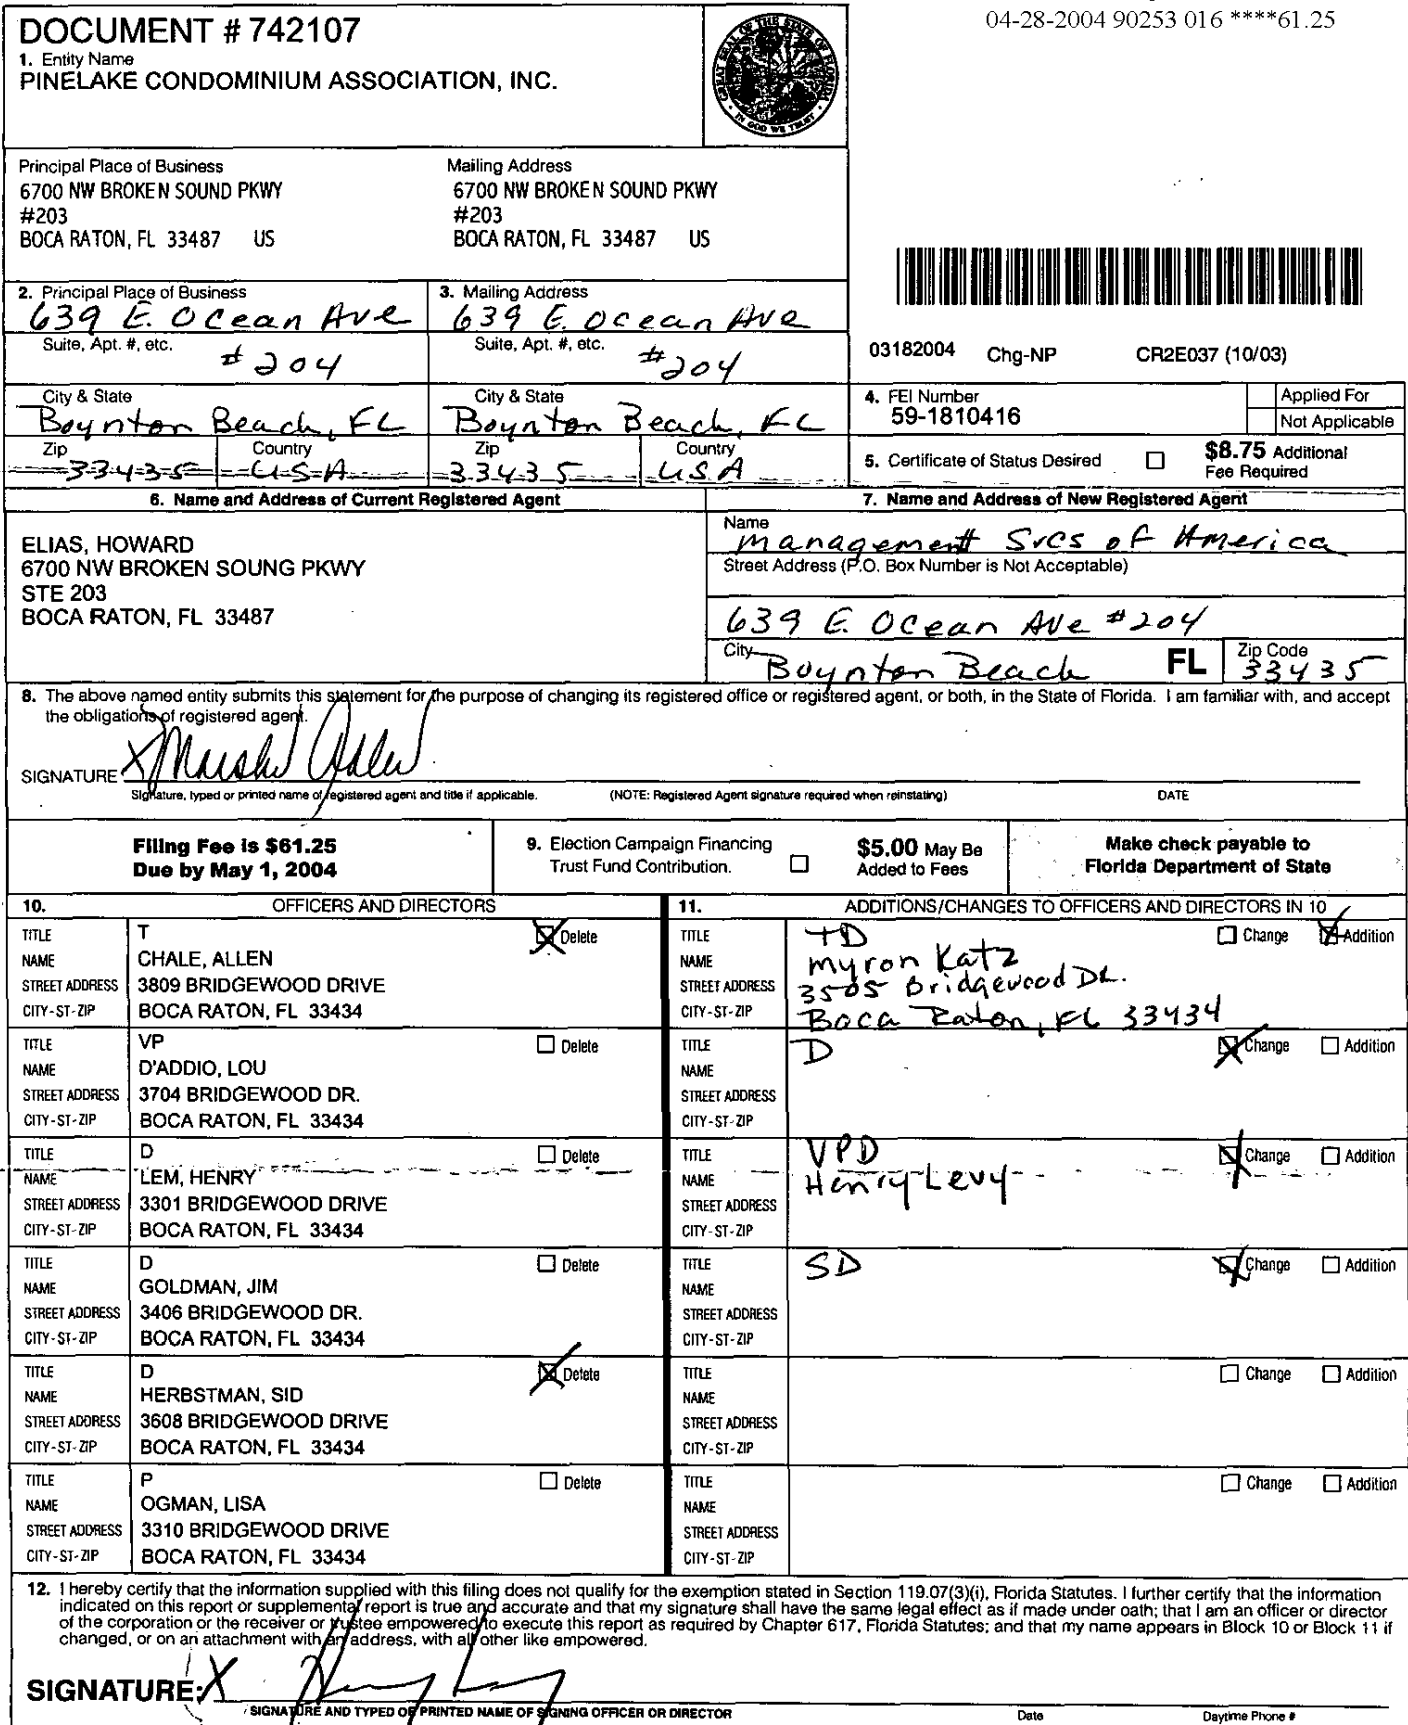 DOCUMENT # 742107
04-28-2004 90253 016 ****61.25
1. Entity Name
PINELAKE CONDOMINIUM ASSOCIATION, INC.
GREAT SEAL OF THE STATE OF FLORIDA
IN GOD WE TRUST
Principal Place of Business
6700 NW BROKEN SOUND PKWY
#203
BOCA RATON, FL 33487 US
Mailing Address
6700 NW BROKEN SOUND PKWY
#203
BOCA RATON, FL 33487 US
2. Principal Place of Business
639 E. Ocean Ave
Suite, Apt. #, etc.
#204
City & State
Boynton Beach, FL
Zip Country
33435 USA
3. Mailing Address
639 E. Ocean Ave
Suite, Apt. #, etc.
#204
City & State
Boynton Beach, FL
Zip Country
33435 USA
03182004 Chg-NP CR2E037 (10/03)
4. FEI Number
59-1810416
Applied For
Not Applicable
5. Certificate of Status Desired
$8.75 Additional
Fee Required
6. Name and Address of Current Registered Agent
ELIAS, HOWARD
6700 NW BROKEN SOUNG PKWY
STE 203
BOCA RATON, FL 33487
7. Name and Address of New Registered Agent
Name
Management Svcs of America
Street Address (P.O. Box Number is Not Acceptable)
639 E. Ocean Ave #204
City Boynton Beach FL Zip Code 33435
8. The above named entity submits this statement for the purpose of changing its registered office or registered agent, or both, in the State of Florida. I am familiar with, and accept
the obligations of registered agent.
SIGNATURE X
Signature, typed or printed name of registered agent and title if applicable. (NOTE: Registered Agent signature required when reinstating) DATE
Filing Fee is $61.25
Due by May 1, 2004
9. Election Campaign Financing
Trust Fund Contribution.
$5.00 May Be
Added to Fees
Make check payable to
Florida Department of State
10. OFFICERS AND DIRECTORS
11. ADDITIONS/CHANGES TO OFFICERS AND DIRECTORS IN 10
TITLE T Delete
NAME CHALE, ALLEN
STREET ADDRESS 3809 BRIDGEWOOD DRIVE
CITY-ST-ZIP BOCA RATON, FL 33434
TITLE TD Change Addition
NAME Myron Katz
STREET ADDRESS 3505 Bridgewood Dr.
CITY-ST-ZIP Boca Raton, FL 33434
TITLE VP Delete
NAME D'ADDIO, LOU
STREET ADDRESS 3704 BRIDGEWOOD DR.
CITY-ST-ZIP BOCA RATON, FL 33434
TITLE D Change Addition
NAME
STREET ADDRESS
CITY-ST-ZIP
TITLE D Delete
NAME LEM, HENRY
STREET ADDRESS 3301 BRIDGEWOOD DRIVE
CITY-ST-ZIP BOCA RATON, FL 33434
TITLE VPD Change Addition
NAME Henry Levy
STREET ADDRESS
CITY-ST-ZIP
TITLE D Delete
NAME GOLDMAN, JIM
STREET ADDRESS 3406 BRIDGEWOOD DR.
CITY-ST-ZIP BOCA RATON, FL 33434
TITLE SD Change Addition
NAME
STREET ADDRESS
CITY-ST-ZIP
TITLE D Delete
NAME HERBSTMAN, SID
STREET ADDRESS 3608 BRIDGEWOOD DRIVE
CITY-ST-ZIP BOCA RATON, FL 33434
TITLE Change Addition
NAME
STREET ADDRESS
CITY-ST-ZIP
TITLE P Delete
NAME OGMAN, LISA
STREET ADDRESS 3310 BRIDGEWOOD DRIVE
CITY-ST-ZIP BOCA RATON, FL 33434
TITLE Change Addition
NAME
STREET ADDRESS
CITY-ST-ZIP
12. I hereby certify that the information supplied with this filing does not qualify for the exemption stated in Section 119.07(3)(i), Florida Statutes. I further certify that the information
indicated on this report or supplemental report is true and accurate and that my signature shall have the same legal effect as if made under oath; that I am an officer or director
of the corporation or the receiver or trustee empowered to execute this report as required by Chapter 617, Florida Statutes; and that my name appears in Block 10 or Block 11 if
changed, or on an attachment with an address, with all other like empowered.
SIGNATURE: X
SIGNATURE AND TYPED OR PRINTED NAME OF SIGNING OFFICER OR DIRECTOR Date Daytime Phone #